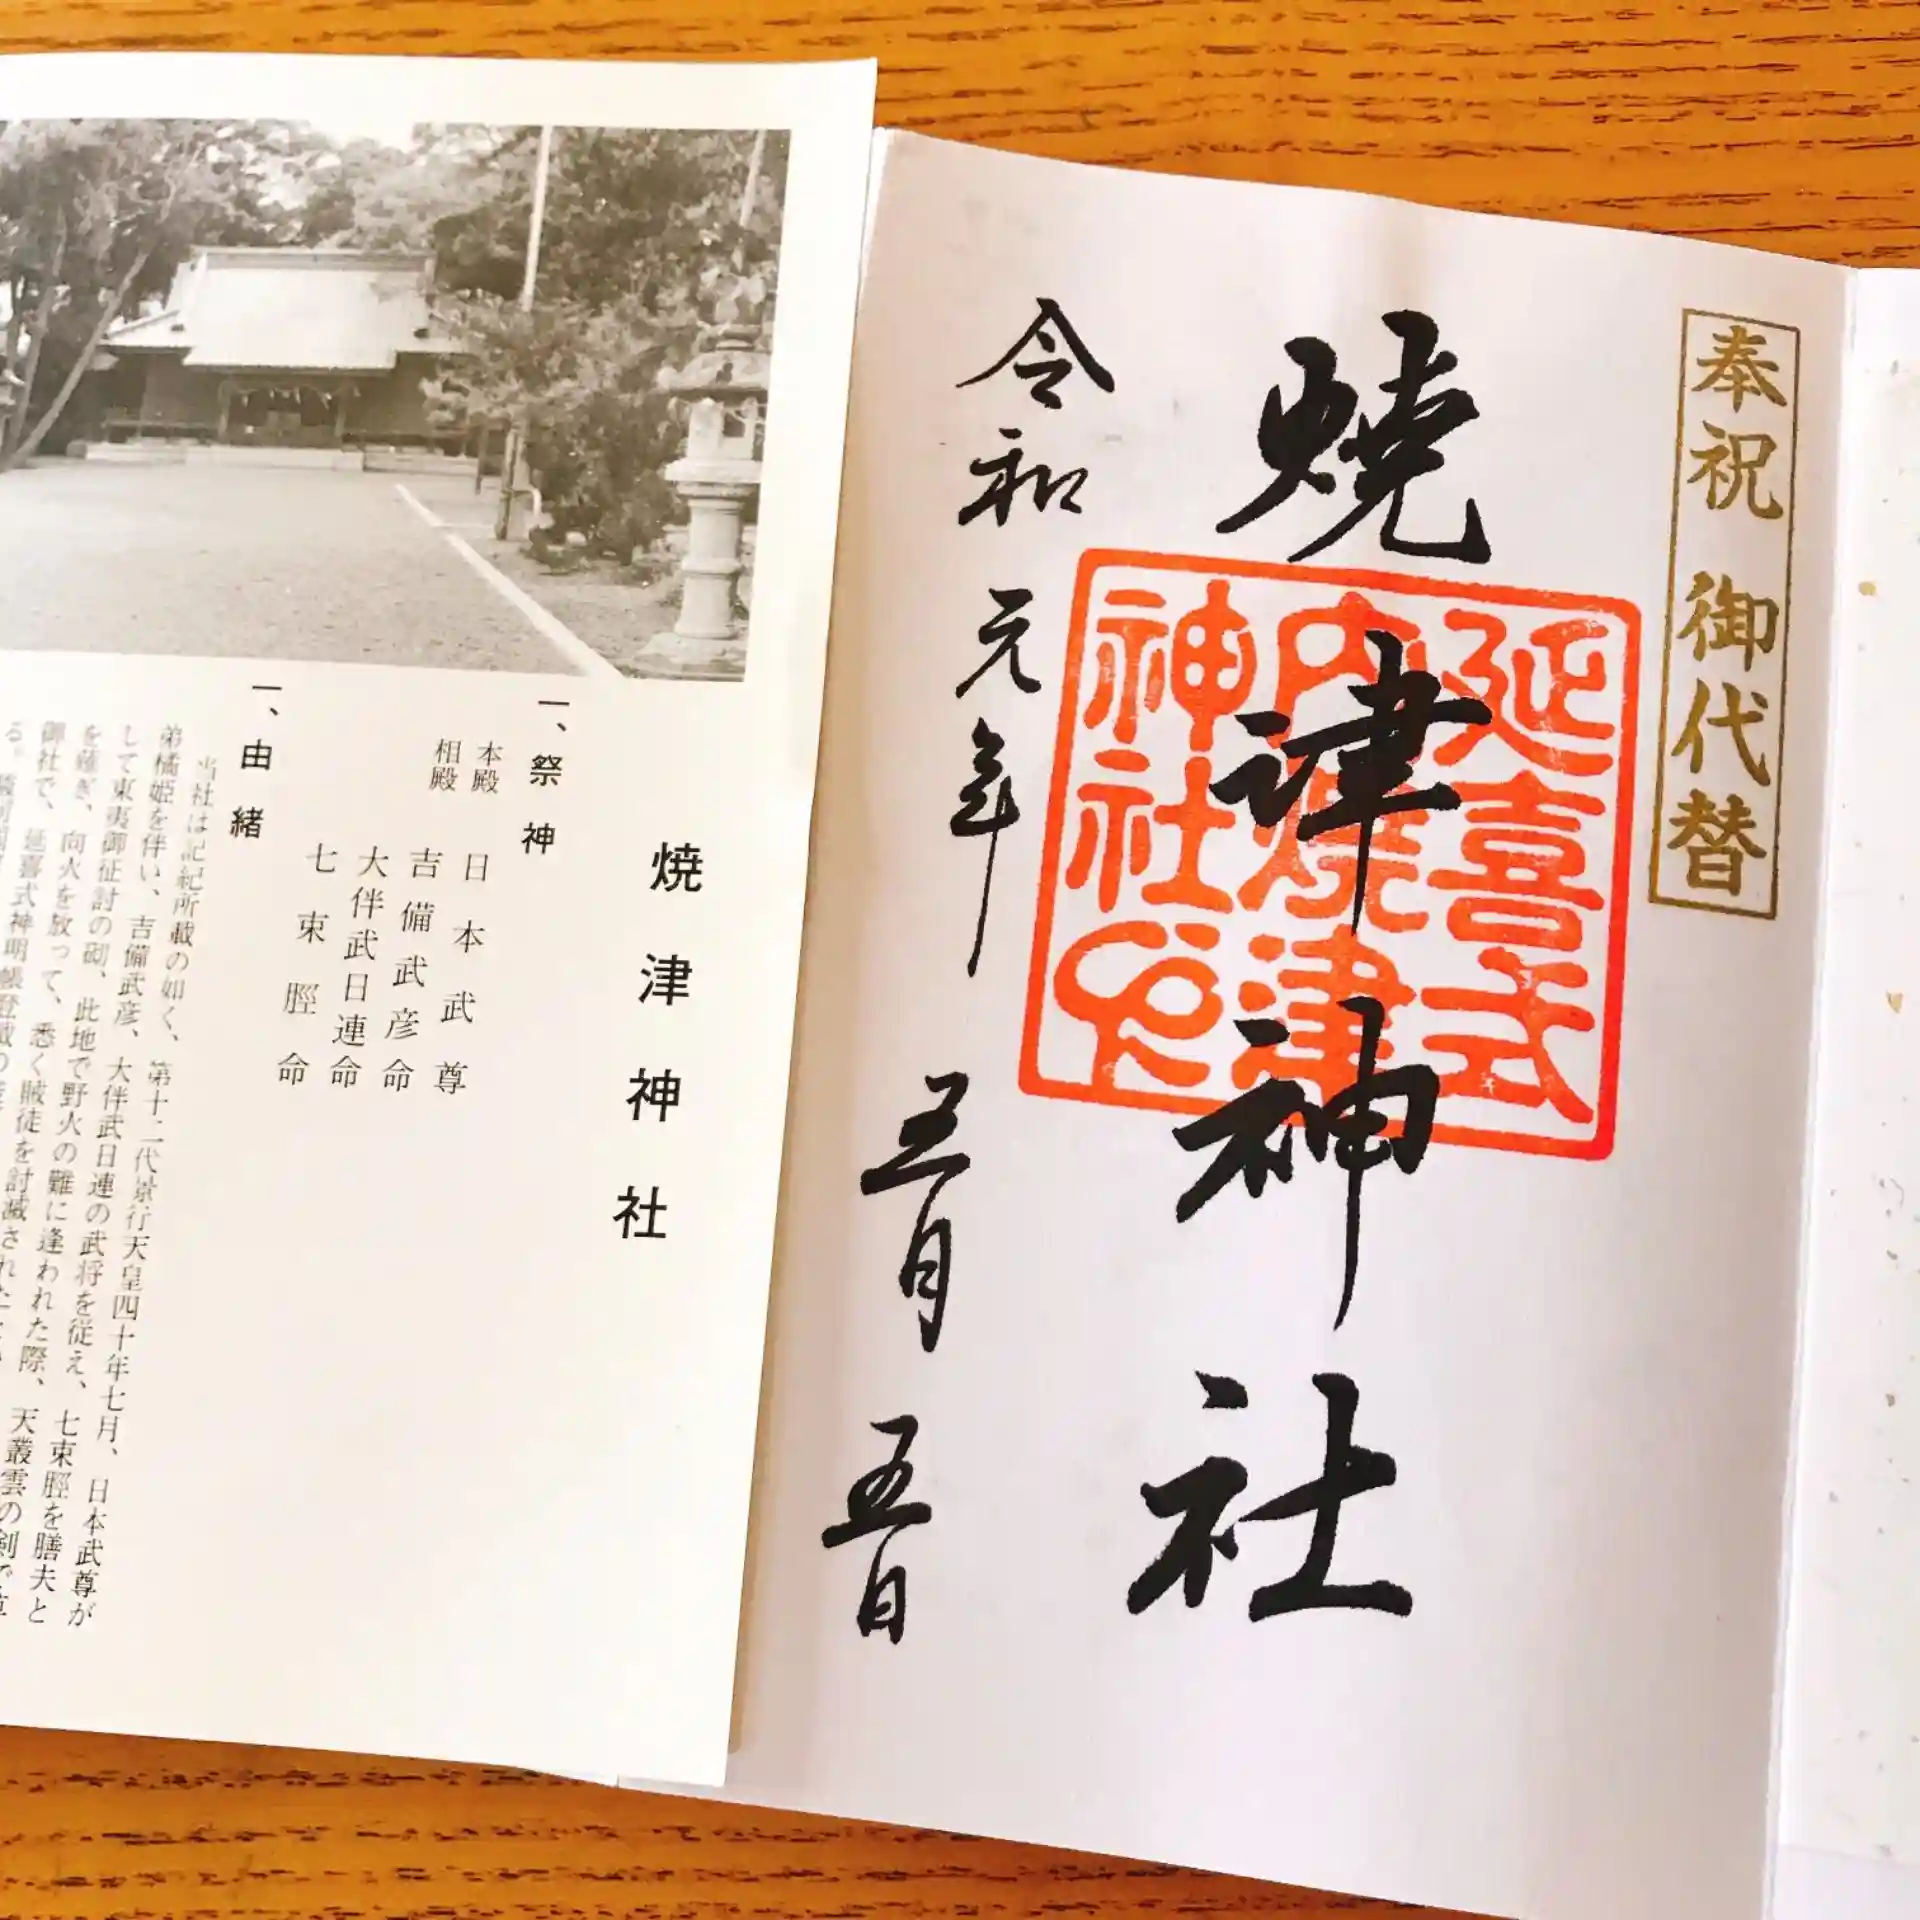 奉祝 御代替
焼津神社
延喜式
内焼津
神社印
令和元年 五月 五日
焼津神社
一、祭神
本殿 日本武尊
相殿 吉備武彦命
大伴武日連命
七束脛命
一、由緒
当社は記紀所載の如く、第十二代景行天皇四十年七月、日本武尊が
弟橘姫を伴い、吉備武彦、大伴武日連の武将を従え、七束脛を膳夫と
して東夷御征討の砌、此地で野火の難に逢われた際、天叢雲の剣で草
を薙ぎ、向火を放って、悉く賊徒を討滅された
御社で、延喜式神明帳登載の
る。